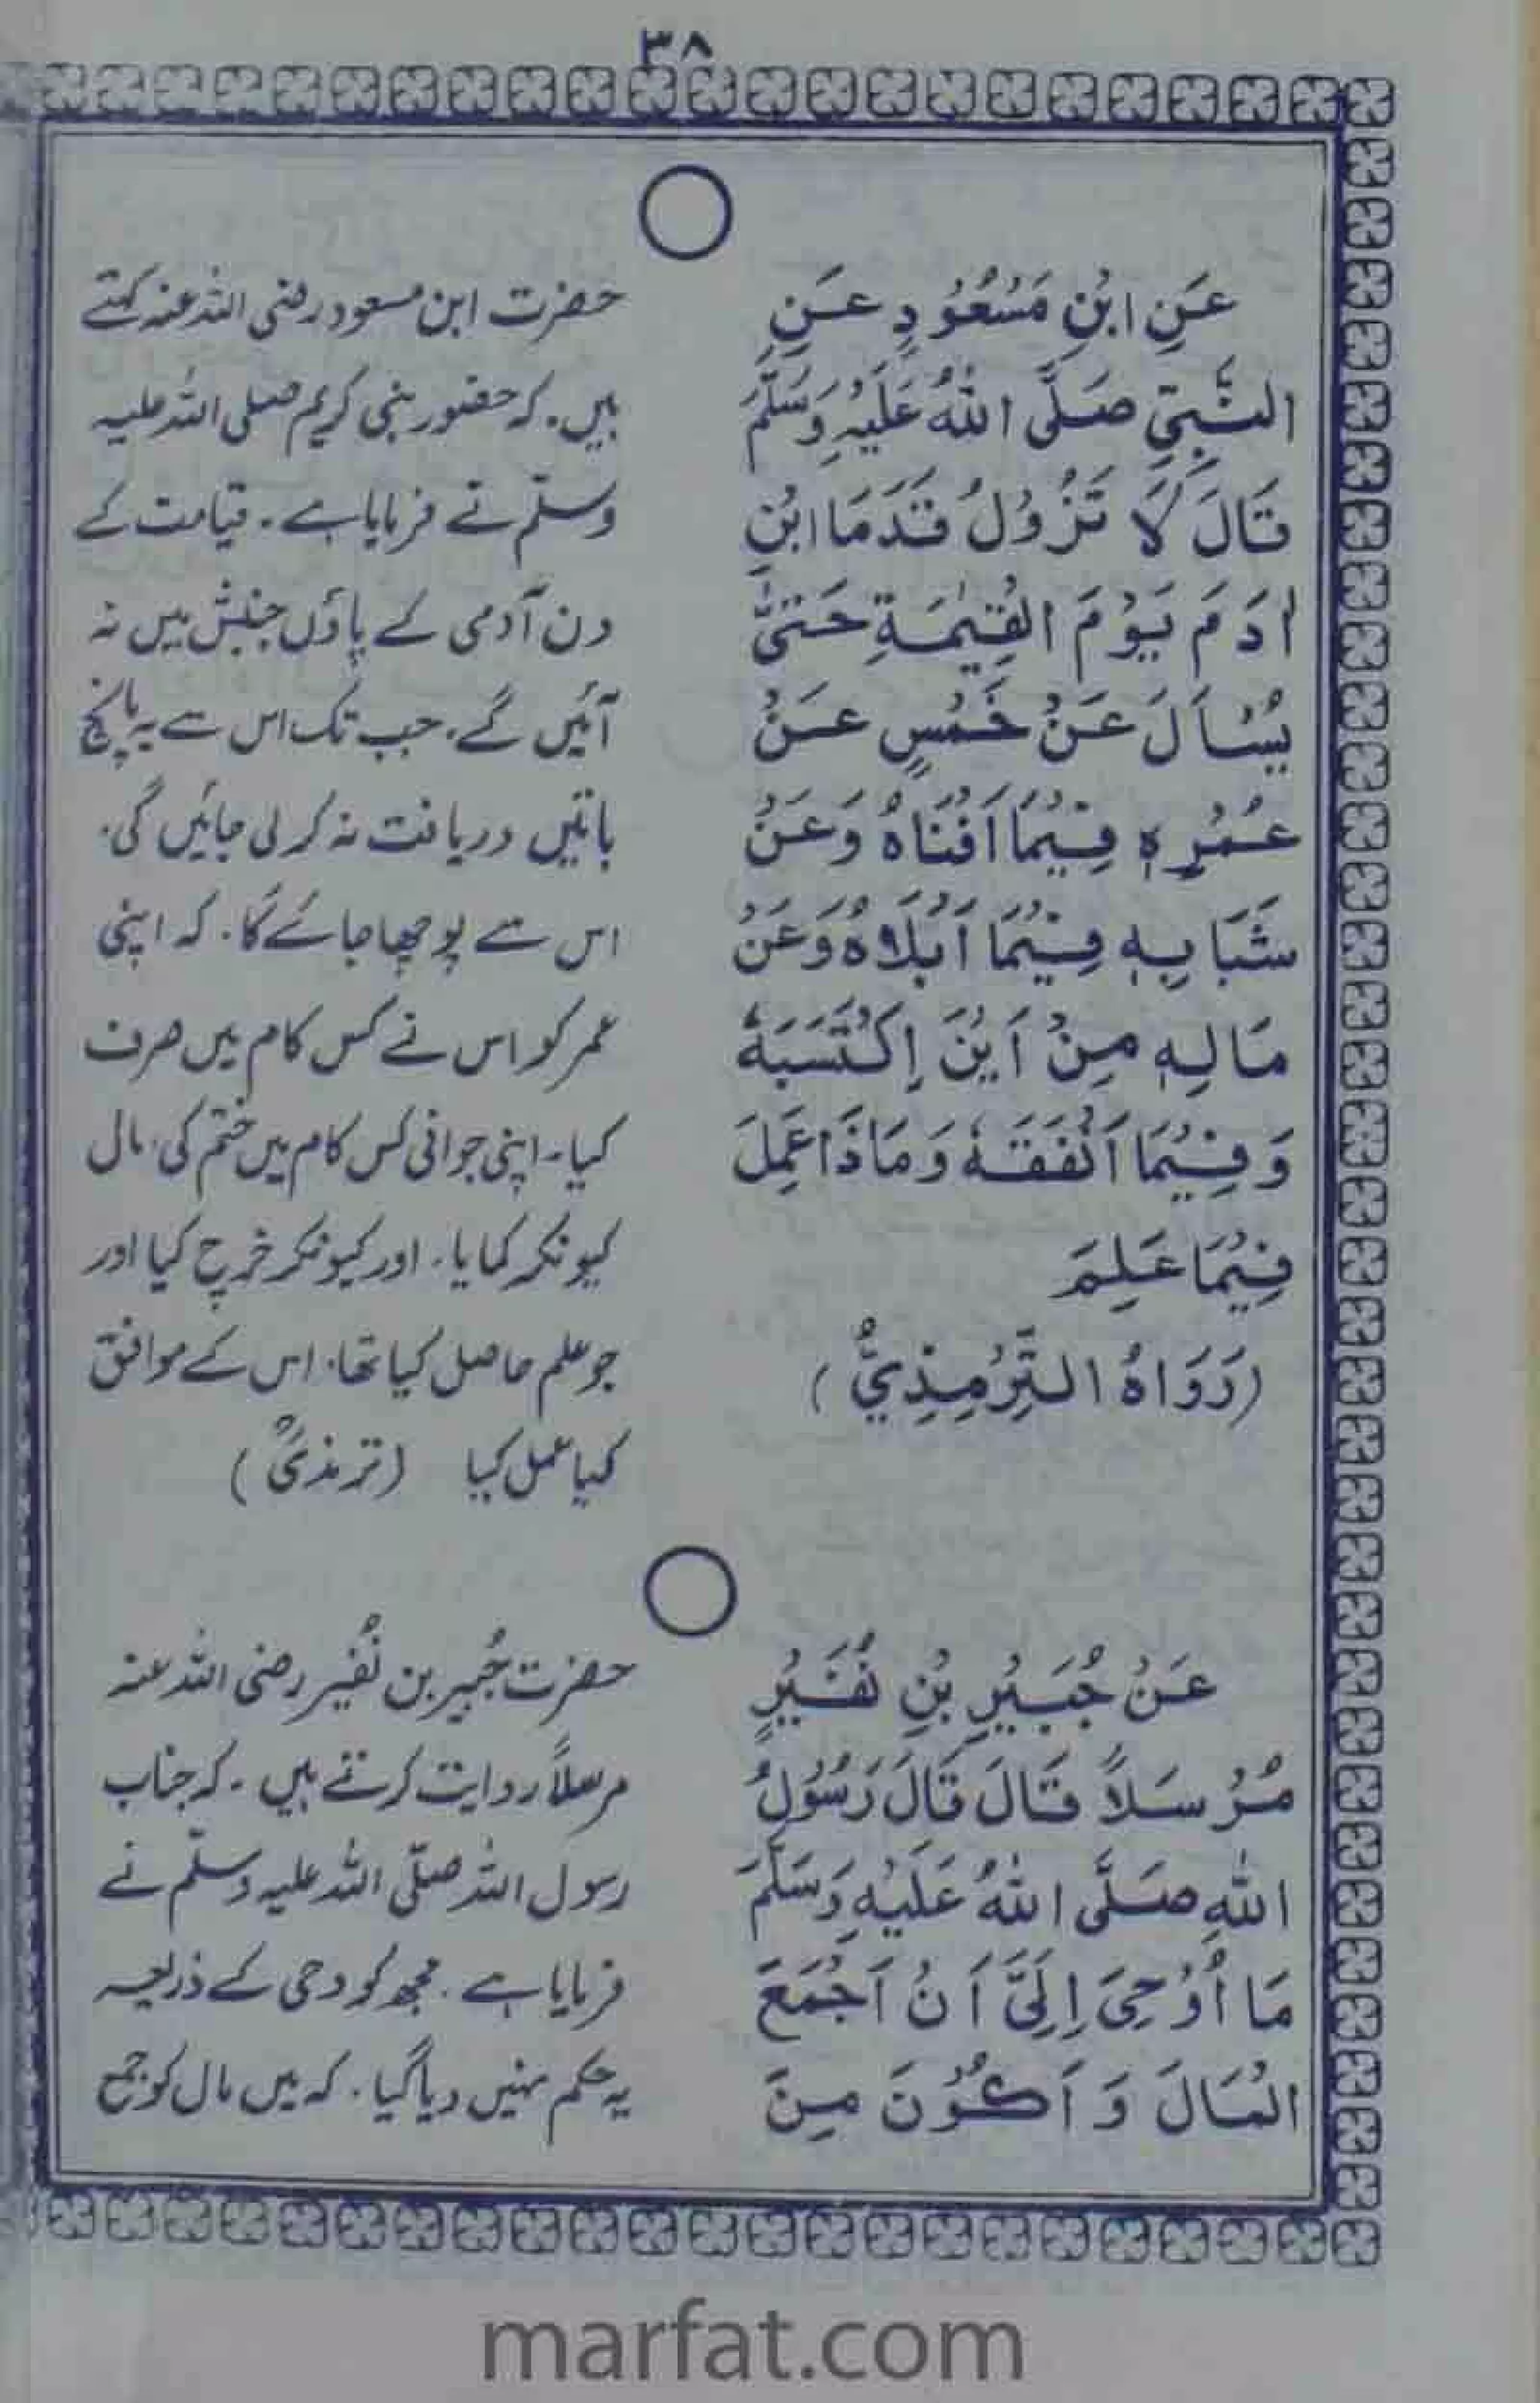 ٣٨
عَنِ ابْنِ مَسْعُوْدٍ عَنِ
النَّبِيِّ صَلَّى اللّٰهُ عَلَيْهِ وَسَلَّمَ
قَالَ لَا تَزُوْلُ قَدَمَا ابْنِ
اٰدَمَ يَوْمَ الْقِيٰمَةِ حَتّٰى
يُسْاَلَ عَنْ خَمْسٍ عَنْ
عُمُرِهٖ فِيْمَا اَفْنَاهُ وَعَنْ
شَبَابِهٖ فِيْمَا اَبْلَاهُ وَعَنْ
مَالِهٖ مِنْ اَيْنَ اِكْتَسَبَهٗ
وَفِيْمَا اَنْفَقَهٗ وَمَاذَا عَمِلَ
فِيْمَا عَلِمَ
(رَوَاهُ التِّرْمِذِيُّ)
حضرت ابن مسعود رضی اللہ عنہ کہتے
ہیں۔ کہ حضور نبی کریم صلی اللہ علیہ
وسلّم نے فرمایا ہے۔ قیامت کے
دن آدمی کے پاؤں جنبش میں نہ
آئیں گے۔ جب تک اس سے یہ پانچ
باتیں دریافت نہ کر لی جائیں گی۔
اس سے پوچھا جائے گا۔ کہ اپنی
عمر کو اس نے کس کام میں صرف
کیا۔ اپنی جوانی کس کام میں ختم کی۔ مال
کیونکر کمایا۔ اور کیونکر خرچ کیا اور
جو علم حاصل کیا تھا۔ اس کے موافق
کیا عمل کیا (ترمذیؒ)
عَنْ جُبَيْرِ بْنِ نُفَيْرٍ
مُرْسَلاً قَالَ قَالَ رَسُوْلُ
اللّٰهِ صَلَّى اللّٰهُ عَلَيْهِ وَسَلَّمَ
مَا اُوْحِيَ اِلَيَّ اَنْ اَجْمَعَ
الْمَالَ وَ اَكُوْنَ مِنَ
حضرت جُبیر بن نُفیر رضی اللہ عنہ
مرسلاً روایت کرتے ہیں۔ کہ جناب
رسول اللہ صلّی اللہ علیہ وسلّم نے
فرمایا ہے۔ مجھ کو وحی کے ذریعہ
یہ حکم نہیں دیا گیا۔ کہ میں مال کو جمع
marfat.com